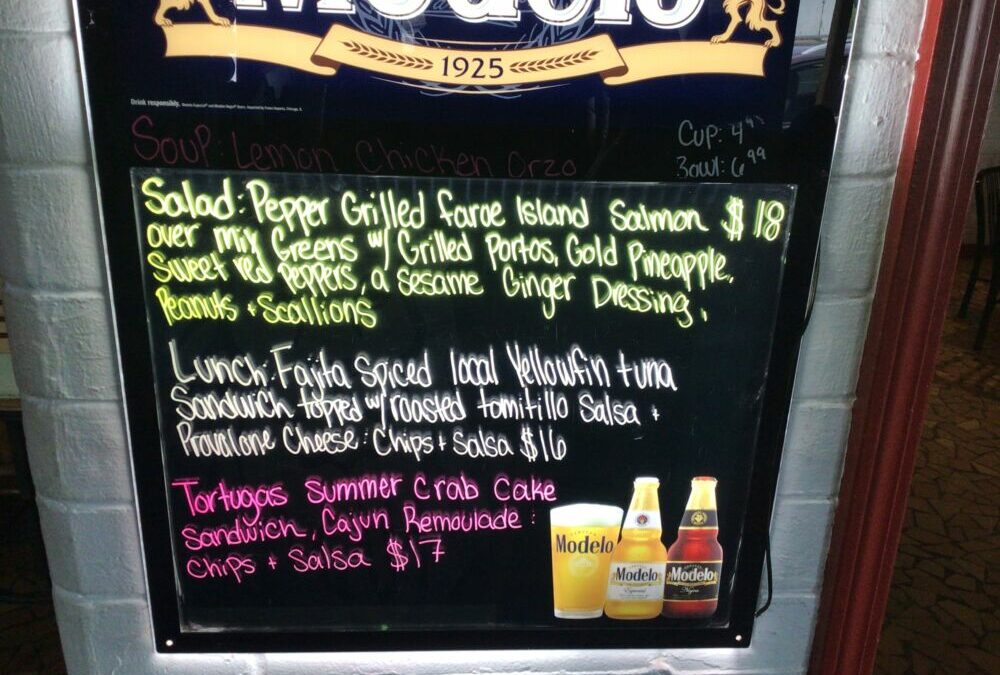 Modelo
1925
Drink responsibly.
Soup: Lemon Chicken Orzo
Cup: 4.95
Bowl: 6.99
Salad: Pepper Grilled faroe Island Salmon $18
over mix Greens w/ Grilled Portos, Gold Pineapple,
Sweet red Peppers, a sesame Ginger Dressing,
Peanuts + Scallions
Lunch: Fajita Spiced local Yellowfin tuna
Sandwich topped w/ roasted tomitillo Salsa +
Provalone Cheese: Chips + Salsa $16
Tortugas Summer Crab Cake
Sandwich, Cajun Remoulade:
Chips + Salsa $17
Modelo
Modelo
Especial
Modelo
Negra